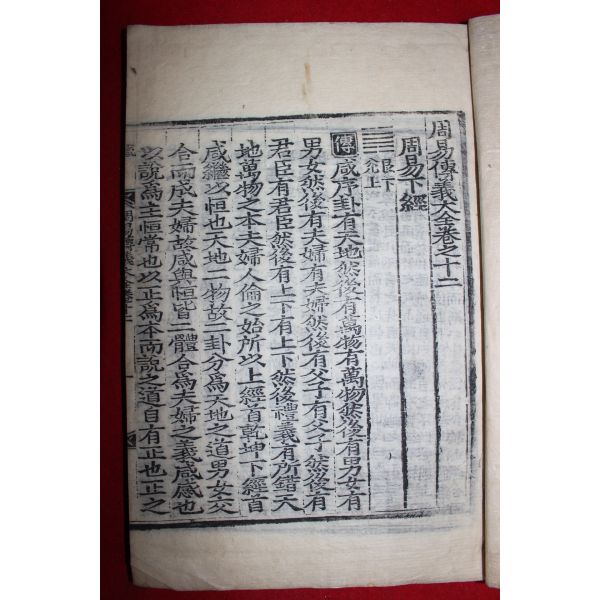 周易傳義大全卷之十二
周易下經
艮下
兌上
傳 咸序卦有天地然後有萬物有萬物然後有男女有
男女然後有夫婦有夫婦然後有父子有父子然後有
君臣有君臣然後有上下有上下然後禮義有所錯天
地萬物之本夫婦人倫之始所以上經首乾坤下經首
咸繼以恒也天地二物故二卦分爲天地之道男女交
合而成夫婦故咸與恒皆二體合爲夫婦之義咸感也
以說爲主恒常也以正爲本而說之道自有正也正之
周易傳義大全卷十二